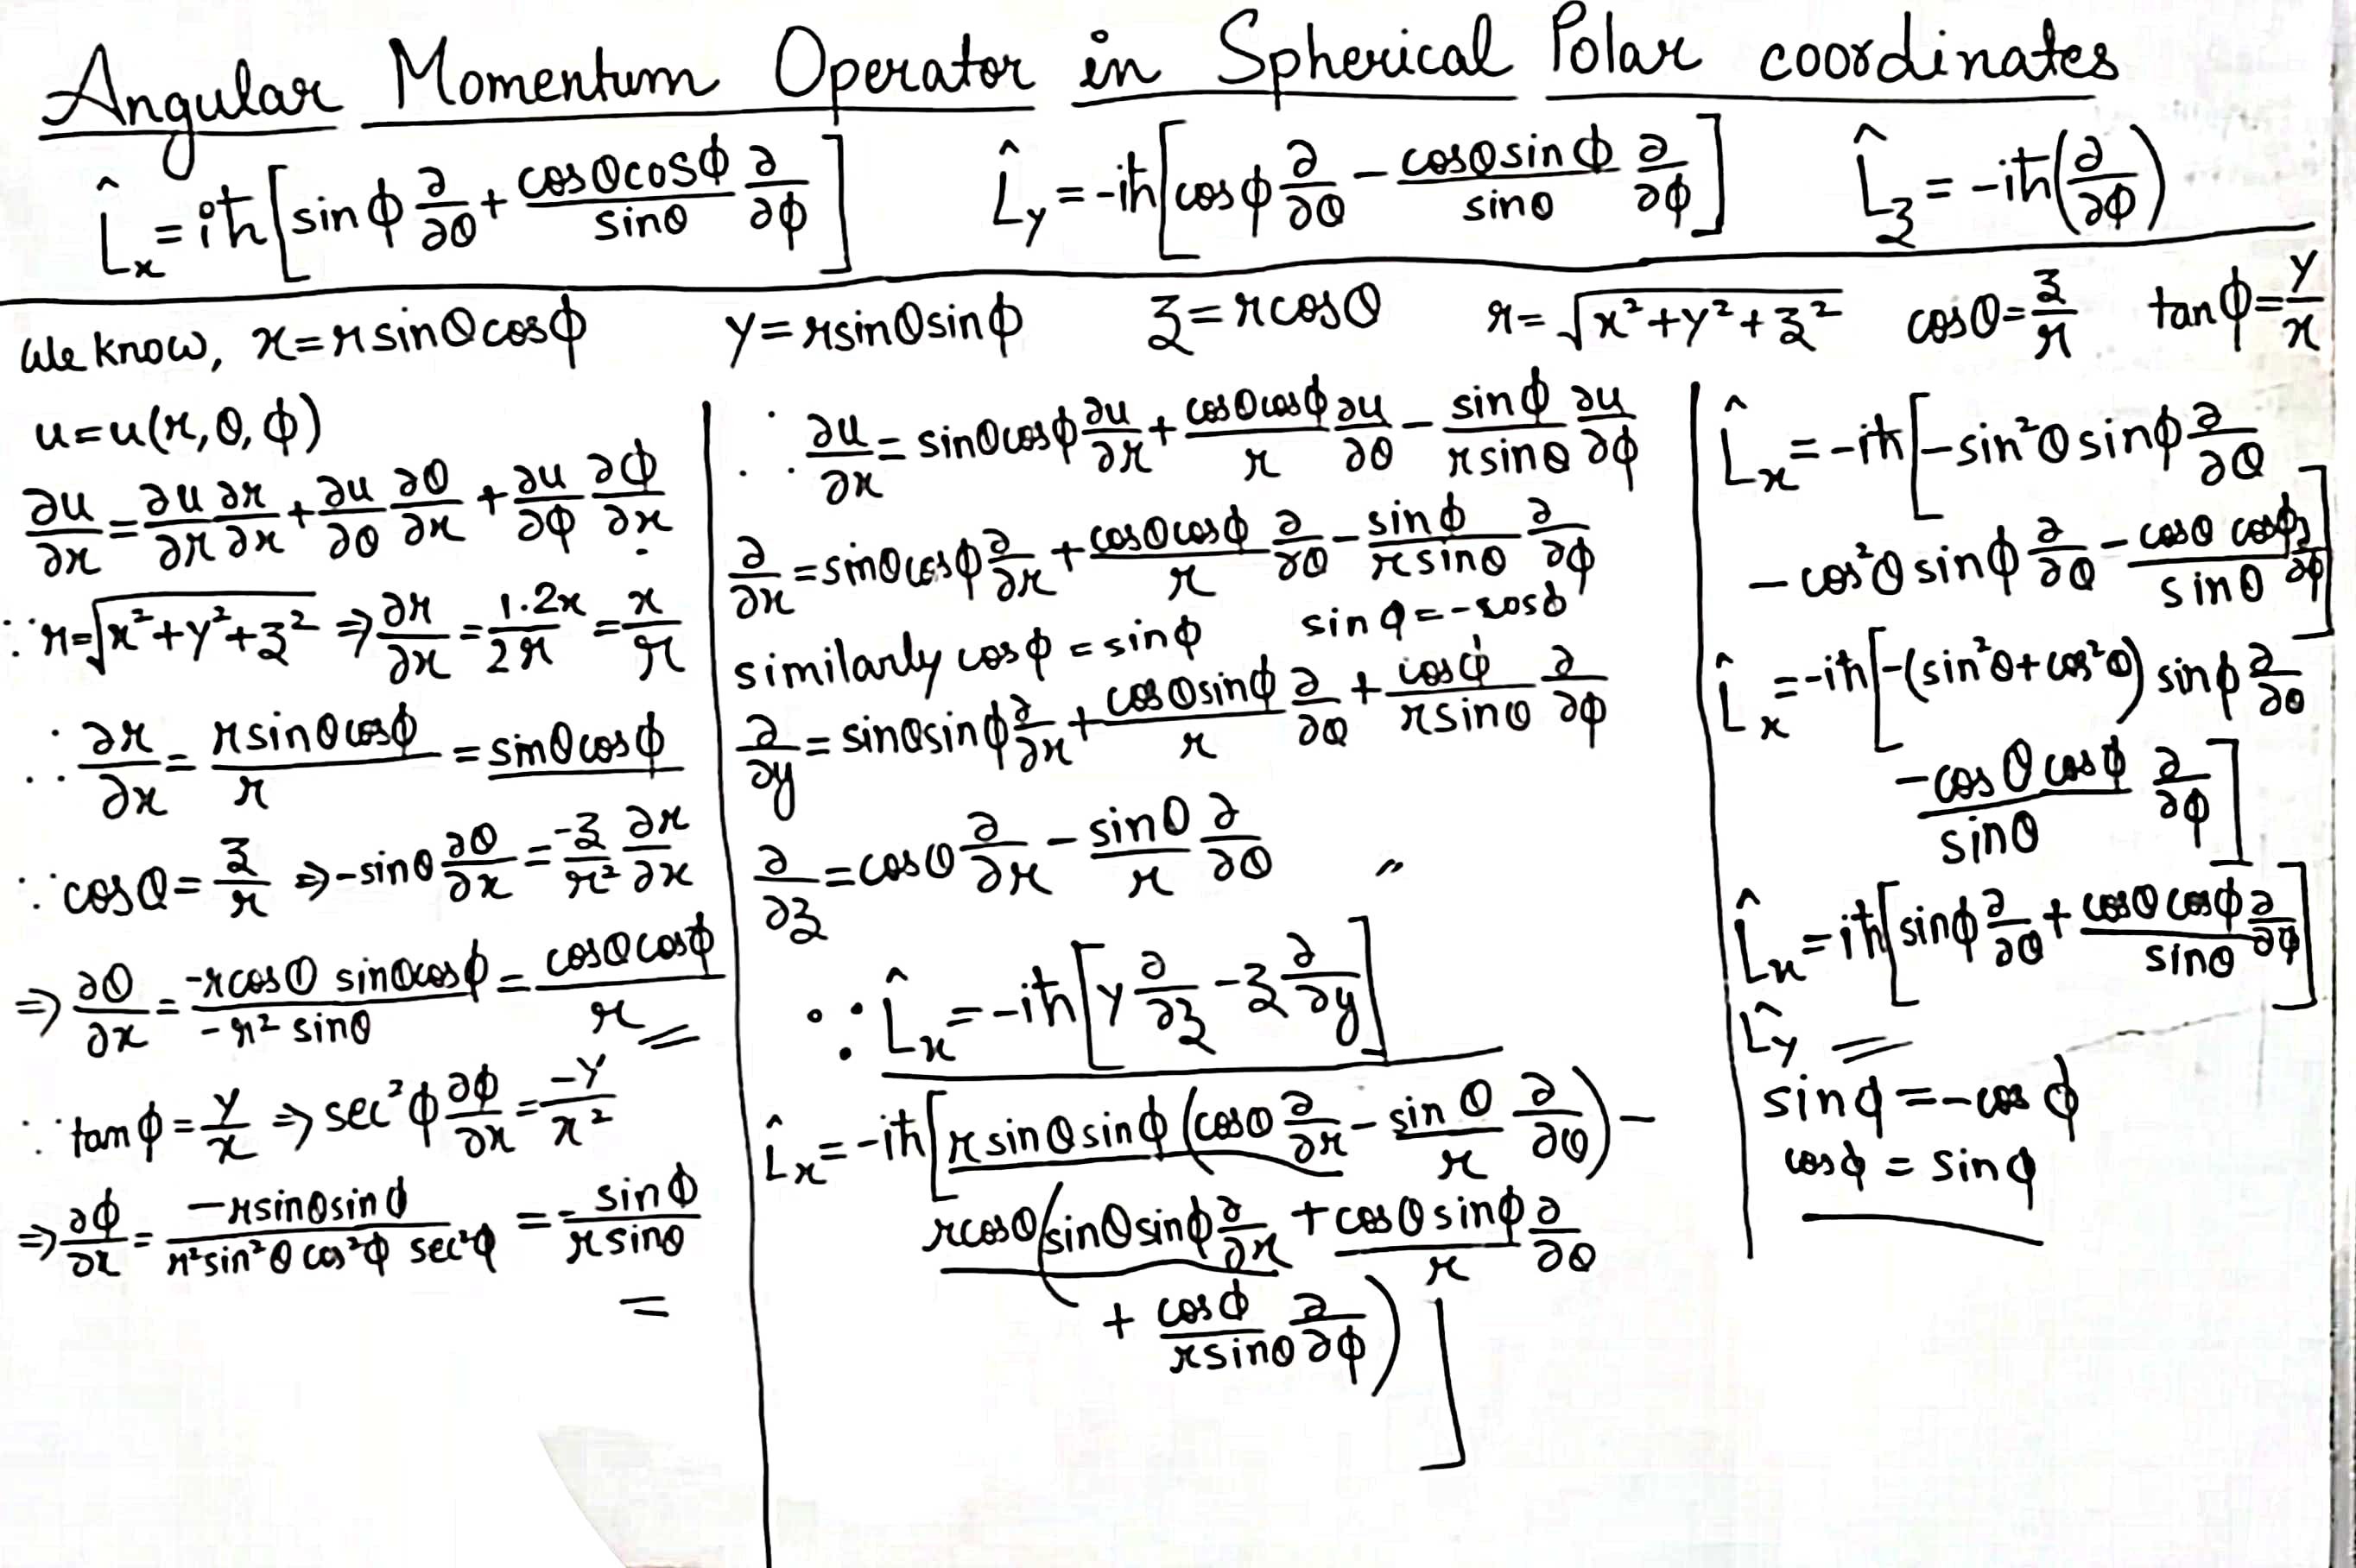 Angular Momentum Operator in Spherical Polar coordinates
L̂x = iħ[sinϕ ∂/∂θ + cosθcosϕ/sinθ ∂/∂ϕ]    L̂y = -iħ[cosϕ ∂/∂θ - cosθsinϕ/sinθ ∂/∂ϕ]    L̂z = -iħ(∂/∂ϕ)
We know, x = rsinθcosϕ    y = rsinθsinϕ    z = rcosθ    r = √(x²+y²+z²)    cosθ = z/r    tanϕ = y/x
u = u(r, θ, ϕ)
∂u/∂x = ∂u/∂r ∂r/∂x + ∂u/∂θ ∂θ/∂x + ∂u/∂ϕ ∂ϕ/∂x
∵ r = √(x²+y²+z²) ⇒ ∂r/∂x = 1·2x/2r = x/r
∴ ∂r/∂x = rsinθcosϕ/r = sinθcosϕ
∵ cosθ = z/r ⇒ -sinθ ∂θ/∂x = -z/r² ∂r/∂x
⇒ ∂θ/∂x = -rcosθ sinθcosϕ/-r² sinθ = cosθcosϕ/r
∵ tanϕ = y/x ⇒ sec²ϕ ∂ϕ/∂x = -y/x²
⇒ ∂ϕ/∂x = -rsinθsinϕ/r²sin²θ cos²ϕ sec²ϕ = - sinϕ/rsinθ
∴ ∂u/∂x = sinθcosϕ ∂u/∂r + cosθcosϕ/r ∂u/∂θ - sinϕ/rsinθ ∂u/∂ϕ
∂/∂x = sinθcosϕ ∂/∂r + cosθcosϕ/r ∂/∂θ - sinϕ/rsinθ ∂/∂ϕ
similarly cosϕ = sinϕ    sinϕ = -cosϕ
∂/∂y = sinθsinϕ ∂/∂r + cosθsinϕ/r ∂/∂θ + cosϕ/rsinθ ∂/∂ϕ
∂/∂z = cosθ ∂/∂r - sinθ/r ∂/∂θ    〃
∵ L̂x = -iħ[y ∂/∂z - z ∂/∂y]
L̂x = -iħ[rsinθsinϕ(cosθ ∂/∂r - sinθ/r ∂/∂θ) -
rcosθ(sinθsinϕ ∂/∂r + cosθsinϕ/r ∂/∂θ
+ cosϕ/rsinθ ∂/∂ϕ)]
L̂x = -iħ[-sin²θsinϕ ∂/∂θ
- cos²θsinϕ ∂/∂θ - cosθ cosϕ/sinθ ∂/∂ϕ]
L̂x = -iħ[-(sin²θ+cos²θ) sinϕ ∂/∂θ
-cosθcosϕ/sinθ ∂/∂ϕ]
L̂x = iħ[sinϕ ∂/∂θ + cosθcosϕ/sinθ ∂/∂ϕ]
L̂y =
sinϕ = -cosϕ
cosϕ = sinϕ